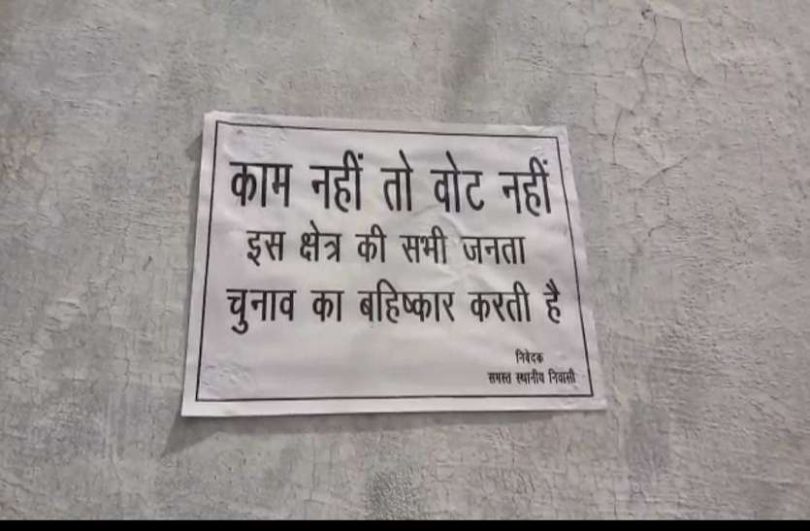 काम नहीं तो वोट नहीं
इस क्षेत्र की सभी जनता
चुनाव का बहिष्कार करती है
निवेदक
समस्त स्थानीय निवासी